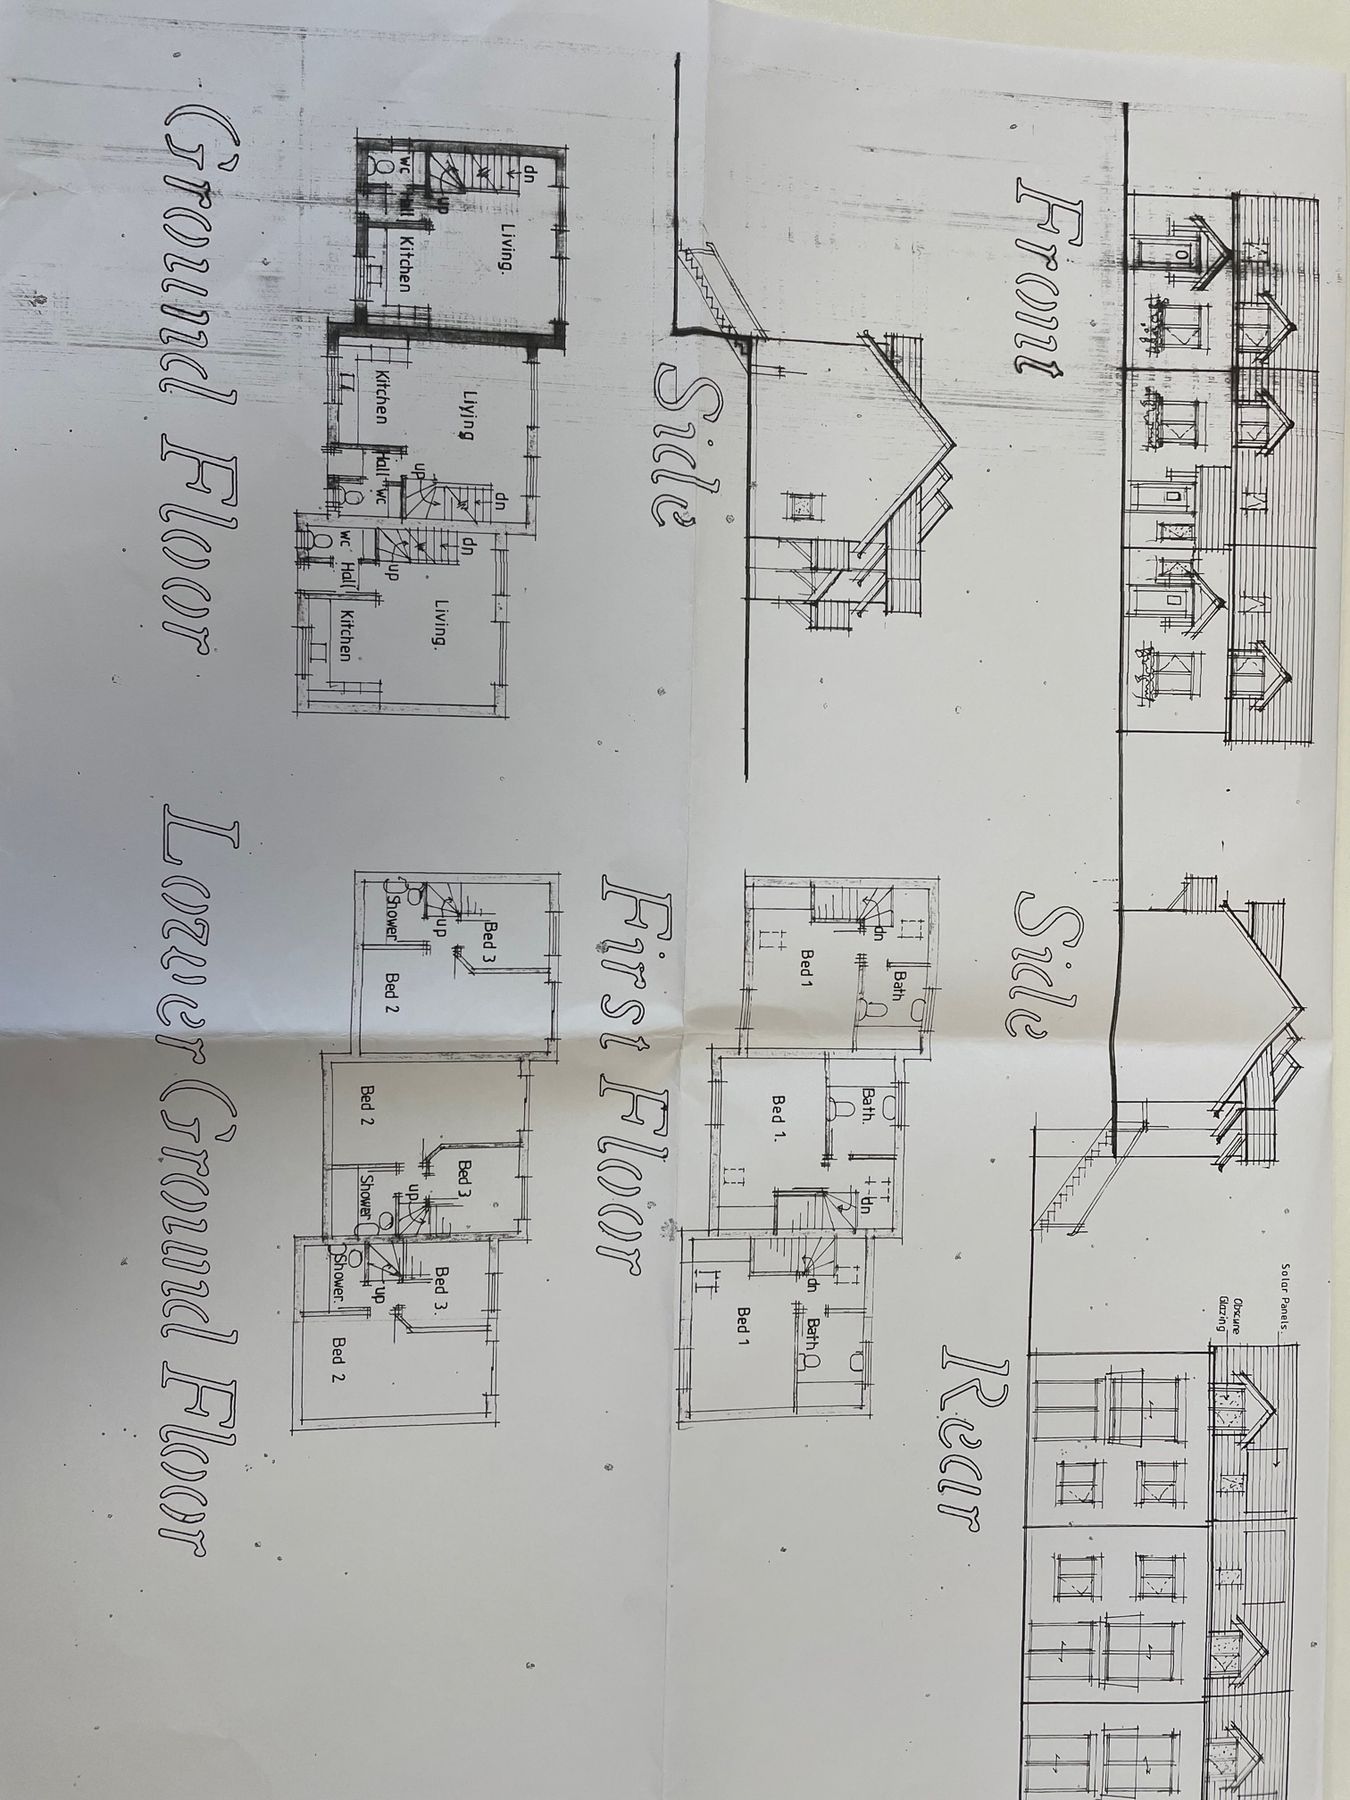 Solar Panels.
Obscure
Glazing
Front
Side
Rear
Side
dn
Bath
Bed 1
Bath.
dn
Bed 1.
dn
Bath
Bed 1
First Floor
dn
Living.
up
wc
Kitchen
Living
dn
up
Kitchen
Hall
wc
dn
Living.
up
wc
Hall
Kitchen
Ground Floor
Bed 3
up
Shower
Bed 2
Bed 3
up
Bed 2
Shower
Bed 3.
up
Shower.
Bed 2
Lower Ground Floor